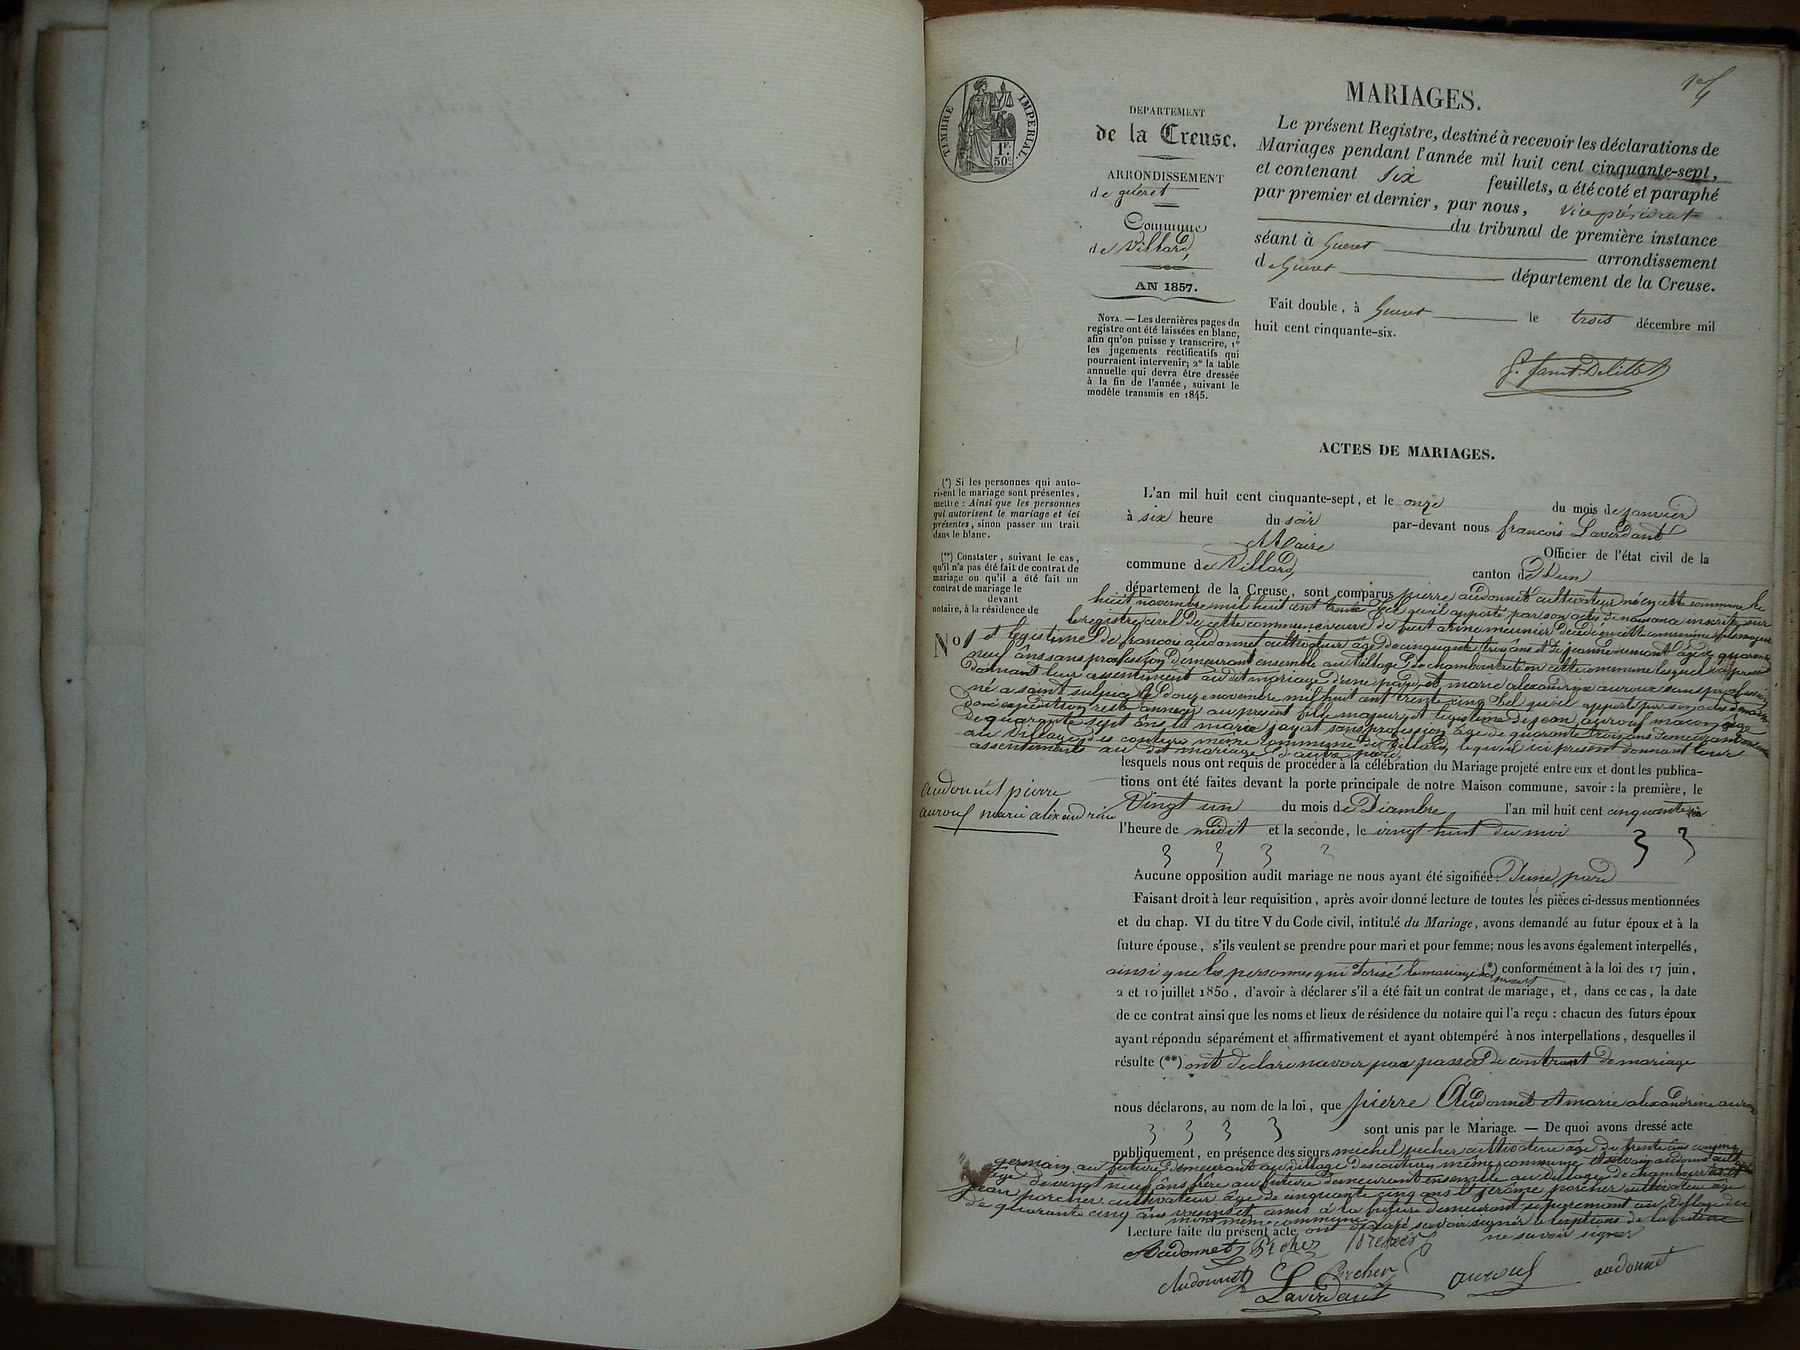 TIMBRE IMPERIAL.
1F.
50c
DEPARTEMENT
de la Creuse.
ARRONDISSEMENT
de guéret
Commune
de Villard
AN 1857.
NOTA. — Les dernières pages du
registre ont été laissées en blanc,
afin qu'on puisse y transcrire, 1°
les jugements rectificatifs qui
pourraient intervenir; 2° la table
annuelle qui devra être dressée
à la fin de l'année, suivant le
modèle transmis en 1845.
MARIAGES.
Le présent Registre, destiné à recevoir les déclarations de
Mariages pendant l'année mil huit cent cinquante-sept,
et contenant six feuillets, a été coté et paraphé
par premier et dernier, par nous, vice président
du tribunal de première instance
séant à Gueret arrondissement
de Gueret département de la Creuse.
Fait double, à Gueret le trois décembre mil
huit cent cinquante-six.
ACTES DE MARIAGES.
(*) Si les personnes qui auto-
risent le mariage sont présentes,
mettre : Ainsi que les personnes
qui autorisent le mariage et ici
présentes, sinon passer un trait
dans le blanc.
(**) Constater, suivant le cas,
qu'il n'a pas été fait de contrat de
mariage ou qu'il a été fait un
contrat de mariage le
devant
notaire, à la résidence de
No 1
audonnet pierre
auroux marie alexandrine
L'an mil huit cent cinquante-sept, et le onze du mois de janvier
à six heure du soir par-devant nous françois Laverdant
Maire Officier de l'état civil de la
commune de Villard canton de Dun
département de la Creuse, sont comparus pierre audonnet cultivateur né en cette commune le
huit novembre mil huit cent trente tel qu'il apporte par son acte de naissance inscrit sur
le registre civil de cette commune veuve de décédé en cette commune fils majeur
et legistime de françois audonnet cultivateur âgé de cinquante trois ans et de jeanne dumont âgé de quarante
neuf âns sans profession demeurant ensemble au village de chambourtrete en cette commune lesquel ici present
donnant leur assentiment au dit mariage d'une part et marie alexandrine auroux sans profession
né a saint sulpice le douze novembre mil huit cent trente cinq tel qu'il apporte par son acte de naissance
dont expédition reste annexer au present fille majeur et legistime de jean auroux macon âgé
de quarante sept âns et marie jayat sans profession âgé de quarante trois ans demeurant ensemble
au village des couture même commune de Villard lequel ici present donnant leur
assentiments au dit mariage d'autre part
lesquels nous ont requis de procéder à la célébration du Mariage projeté entre eux et dont les publica-
tions ont été faites devant la porte principale de notre Maison commune, savoir : la première, le
Vingt un du mois de Décembre l'an mil huit cent cinquante six
l'heure de midit et la seconde, le vingt huit du moi
Aucune opposition audit mariage ne nous ayant été signifiée. D'une pard
Faisant droit à leur requisition, après avoir donné lecture de toutes les pièces ci-dessus mentionnées
et du chap. VI du titre V du Code civil, intitulé du Mariage, avons demandé au futur époux et à la
future épouse, s'ils veulent se prendre pour mari et pour femme; nous les avons également interpellés,
ainsi que les personnes qui torisé le mariage ici present (*) conformément à la loi des 17 juin,
2 et 10 juillet 1850, d'avoir à déclarer s'il a été fait un contrat de mariage, et, dans ce cas, la date
de ce contrat ainsi que les noms et lieux de résidence du notaire qui l'a reçu : chacun des futurs époux
ayant répondu séparément et affirmativement et ayant obtempéré à nos interpellations, desquelles il
résulte (**) ont declare navoir pas passer de contrat de mariage
nous déclarons, au nom de la loi, que pierre Audonnet et marie alexandrine auroux
sont unis par le Mariage. — De quoi avons dressé acte
publiquement, en présence des sieurs michel pecher cultivateur âgé de trente cousin
germain au future demeurant au village des couture même commune audonnet
âgé de vingt neuf âns frère au future demeurant ensemble au village de
jean porcher cultivateur âge de cinquante cinq ans et jérôme porcher cultivateur âgé
de quarante cinq âns voisins et amis à la future demeurant séparemant au Village de
même commune
Lecture faite du présent acte, ont declaré savoir signér à lexception de la future
ne savoir signer
Audonnet Pecher Porcher
Audonnet Porcher auroux audonnet
Laverdant